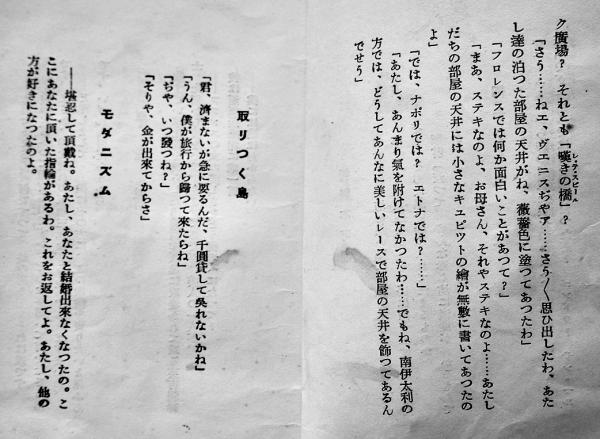 ク廣場？　それとも「嘆きの橋」？
レ・スピール
「さう……ねエ、ヴエニスぢやア……さう〳〵思ひ出したわ、あた
し達の泊つた部屋の天井がね、薔薇色に塗つてあつたわ」
「フロレンスでは何か面白いことがあつて？」
「まあ、ステキなのよ、お母さん、それやステキなのよ……あたし
だちの部屋の天井には小さなキユピツトの繪が無數に書いてあつたの
よ」
「では、ナポリでは？　エトナでは？……」
「あたし、あんまり氣を附けてなかつたわ……でもね、南伊太利の
方では、どうしてあんなに美しいレースで部屋の天井を飾つてあるん
でせう」
取りつく島
「君、濟まないが急に要るんだ、千圓貸して吳れないかね」
「うん、僕が旅行から歸つて來たらね」
「ぢや、いつ發つね？」
「そりや、金が出來てからさ」
モダニズム
――堪忍して頂戴ね。あたし、あなたと結婚出來なくなつたの。こ
こにあなたに頂いた指輪があるわ。これをお返してよ。あたし、他の
方が好きになつたのよ。